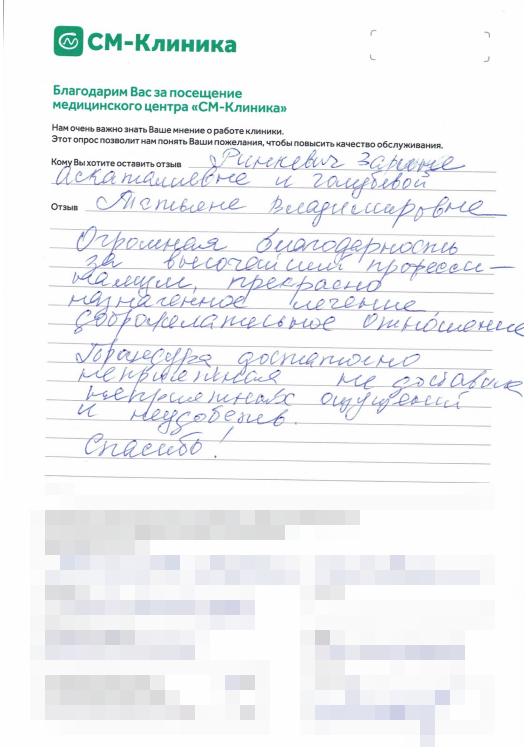 СМ-Клиника
Благодарим Вас за посещение
медицинского центра «СМ-Клиника»
Нам очень важно знать Ваше мнение о работе клиники.
Этот опрос позволит нам понять Ваши пожелания, чтобы повысить качество обслуживания.
Кому Вы хотите оставить отзыв Ринкевич Зарине
Аскаталиевне и Голубевой
Отзыв Татьяне Владимировне
Огромная благодарность
за высочайший професси-
нализм, прекрасно
назначенное лечение
доброжелательное отношение
Процедура достаточно
неприятная не доставила
неприятных ощущений
и неудобств.
Спасибо!